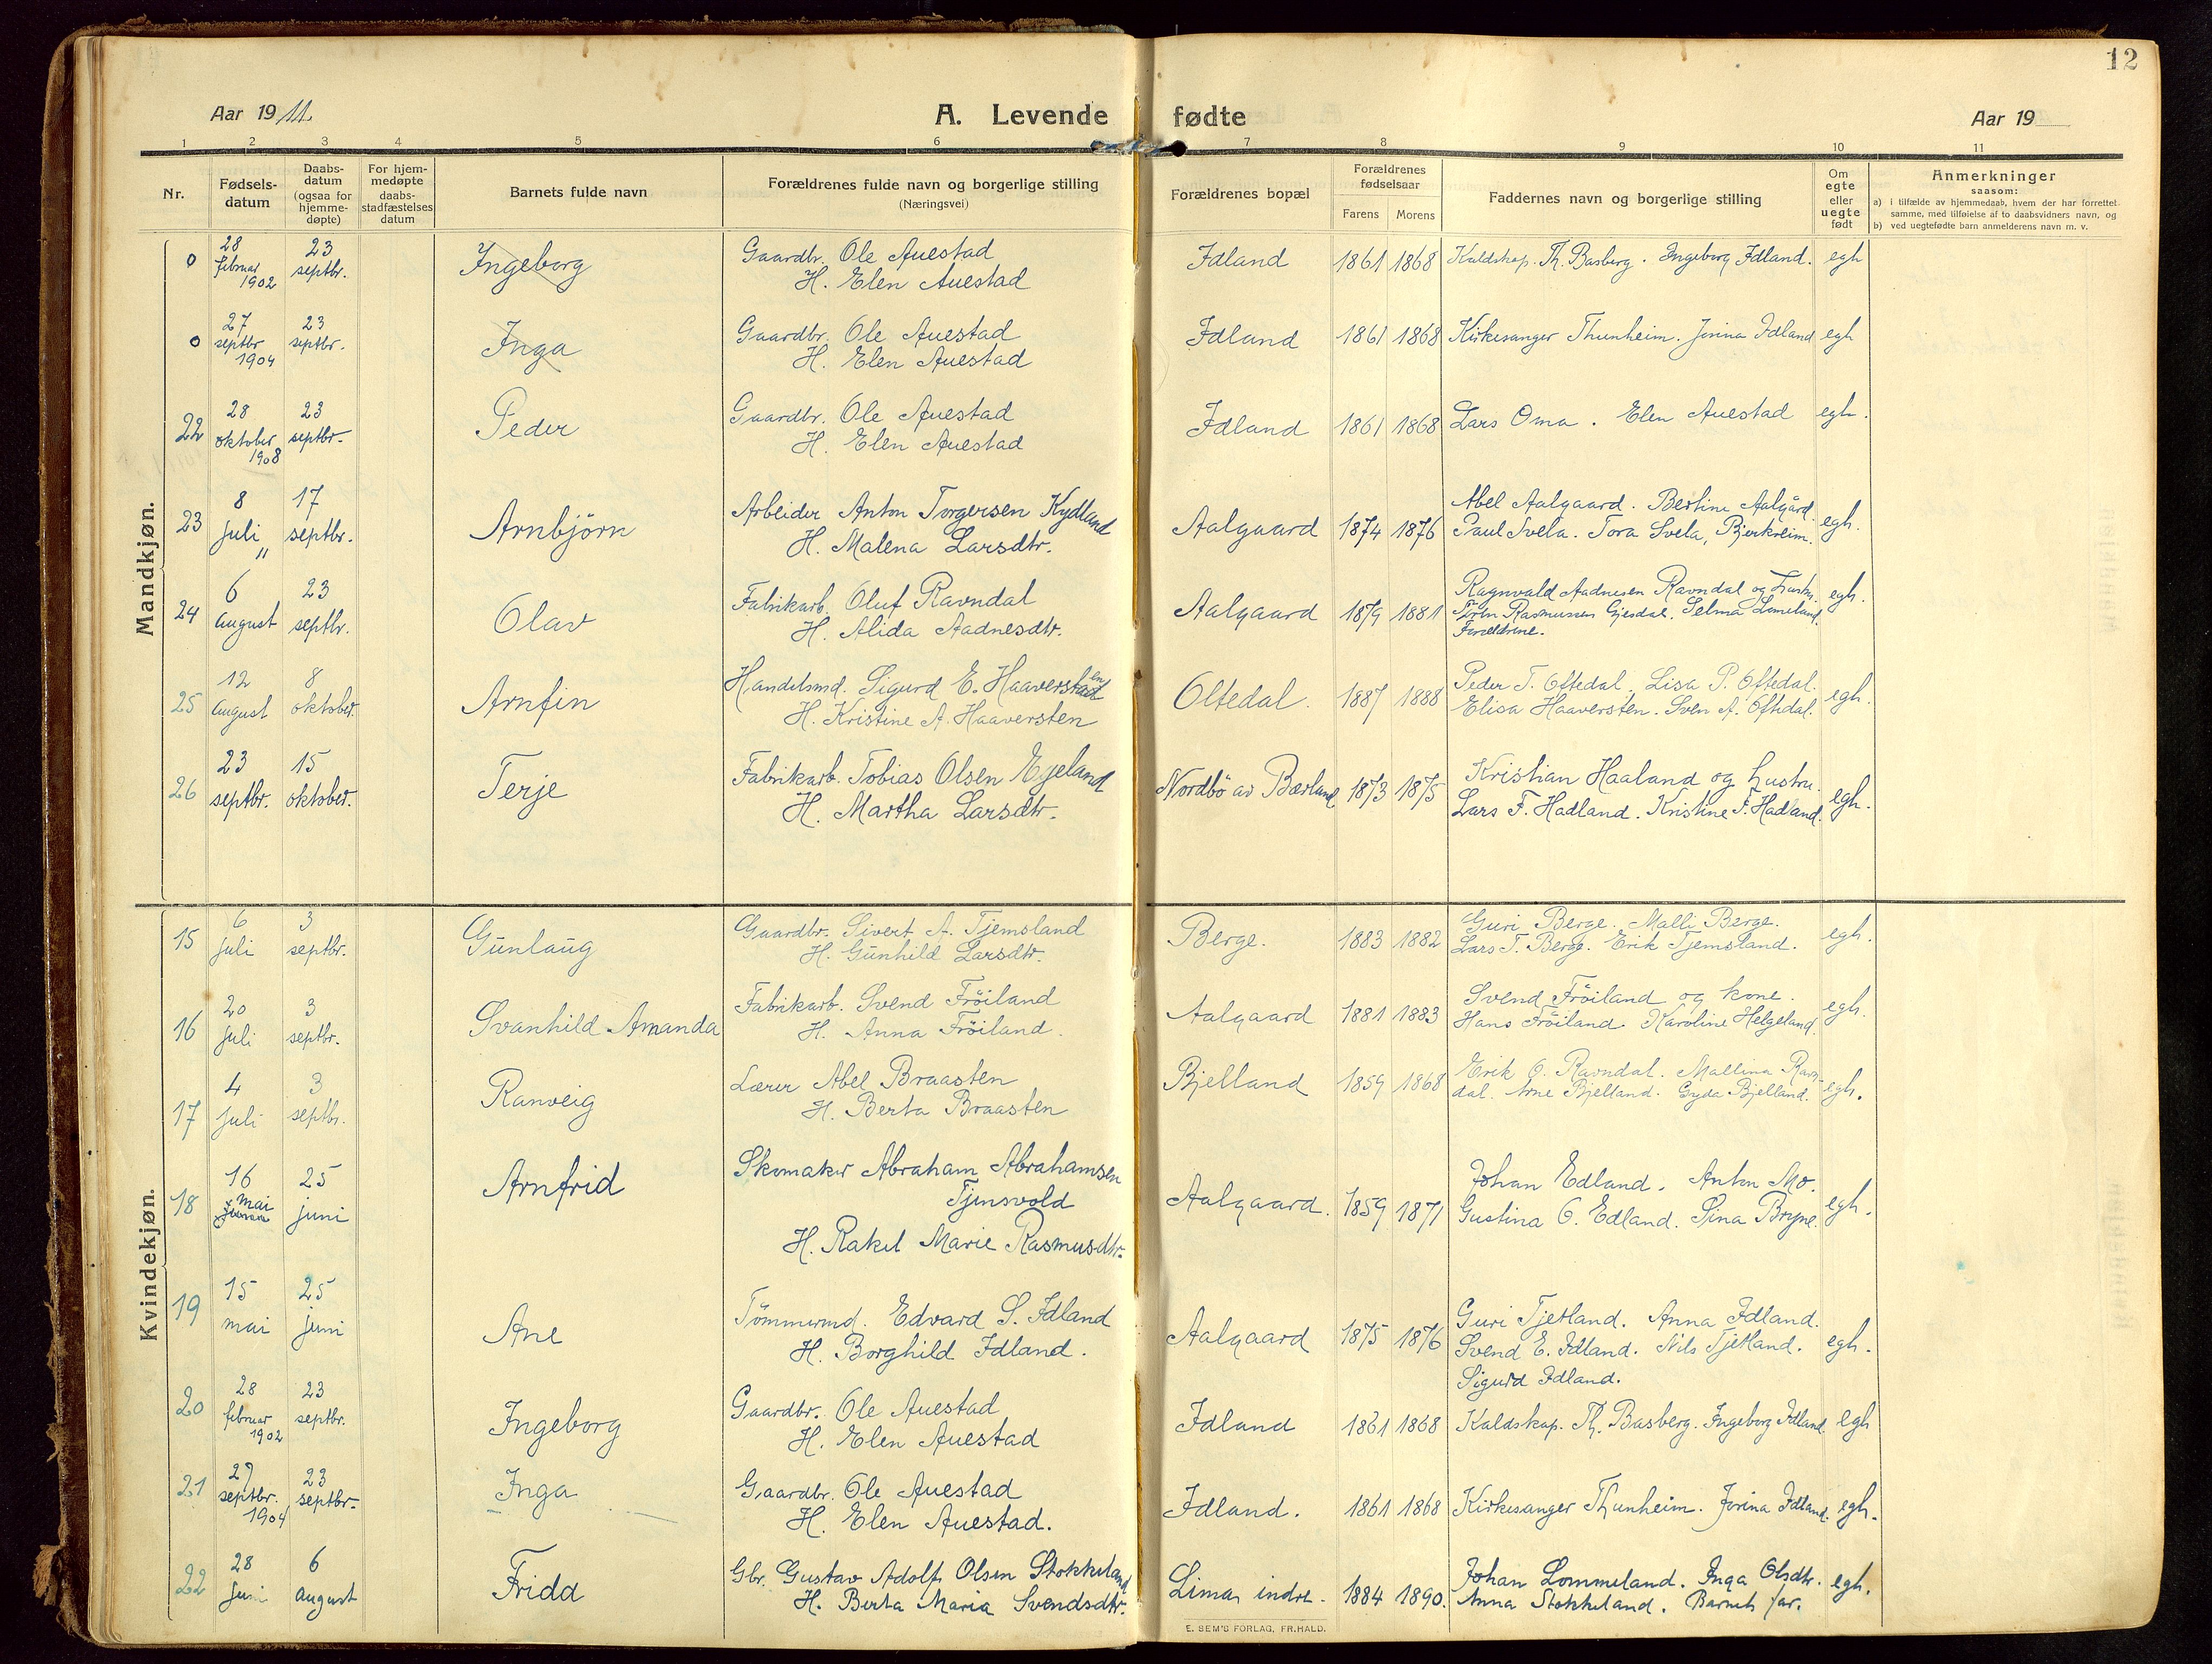 12
Aar 1911.
A. Levende
fødte
Aar 19
1 2 3 4 5 6 7 8 9 10 11
Nr.
Fødsels-
datum
Daabs-
datum
(ogsaa for
hjemme-
døpte)
For hjem-
medøpte
daabs-
stadfæstelses
datum
Barnets fulde navn
Forældrenes fulde navn og borgerlige stilling
(Næringsvei)
Forældrenes bopæl
Forældrenes
fødselsaar
Farens Morens
Faddernes navn og borgerlige stilling
Om
egte
eller
uegte
født
Anmerkninger
saasom:
a) i tilfælde av hjemmedaab, hvem der har forrettet
samme, med tilføielse af to daabsvidners navn, og
b) ved uegtefødte barn anmelderens navn m. v.
Mandkjøn.
0
28
februar
1902
23
septbr.
Ingeborg
Gaardbr. Ole Auestad
H. Elen Auestad
Idland
1861 1868
Kaldskap. Th. Basberg. Ingeborg Idland.
egh
0
27
septbr
1904
23
septbr.
Inga
Gaardbr. Ole Auestad
H. Elen Auestad
Idland
1861 1868
Kirkesanger Thunheim. Jorina Idland
egh
22
28
oktober
1908
23
septbr.
Peder
Gaardbr. Ole Auestad
H. Elen Auestad
Idland
1861 1868
Lars Oma. Elen Auestad
egh.
23
8
juli
"
17
septbr.
Arnbjörn
Arbeider Anton Torgersen Kydland
H. Malena Larsdtr.
Aalgaard
1874 1876
Abel Aalgaard. Bertine Aalgård.
Paul Svela. Tora Svela, Bjerkreim.
egh.
24
6
august
23
septbr.
Olav
Fabrikarb. Oluf Ravndal
H. Alida Aadnesdtr.
Aalgaard
1879 1881
Ragnvald Aadnesen Ravndal og hustru.
Rasmussen Gjesdal. Selma Limeland.
Forældrene.
egh.
25
12
august
8
oktober.
Arnfin
Handelsmd. Sigurd E. Haaversten
H. Kristine A. Haaversten
Oltedal.
1887 1888
Peder T. Oftedal. Lisa P. Oftedal.
Elisa Haaversten. Sven A. Oftedal.
egh.
26
23
septbr.
15
oktober.
Terje
Fabrikarb. Tobias Olsen Egeland
H. Martha Larsdtr.
Nordbö av Bærland
1873 1875
Kristian Haaland og hustru.
Lars F. Hadland. Kristine F. Hadland.
egh.
Kvindekjøn.
15
6
juli
3
septbr.
Gunlaug
Gaardbr. Sivert A. Tjemsland
H. Gunhild Larsdtr.
Berge.
1883 1882
Guri Berge. Malli Berge.
Lars T. Berge. Erik Tjemsland.
egh.
16
20
juli
3
septbr.
Svanhild Amanda
Fabrikarb. Svend Fröiland
H. Anna Fröiland.
Aalgaard
1881 1883
Svend Fröiland og kone.
Hans Fröiland. Karoline Helgeland.
egh.
17
4
juli
3
septbr.
Ranveig
Lærer Abel Braasten
H. Berta Braasten
Bjelland
1859 1868
Erik O. Ravndal. Mallina Ravn-
dal. Arne Bjelland. Gyda Bjelland.
egh.
18
16
mai
25
juni
Arnfrid
Skomaker Abraham Abrahamsen
Tjensvold
H. Rakel Marie Rasmusdtr.
Aalgaard.
1859 1871
Johan Edland. Anton Mo.
Gustina O. Edland. Sina Bryne.
egh.
19
15
mai
25
juni
Ane
Tömmermd. Edvard S. Idland
H. Borghild Idland.
Aalgaard
1875 1876
Guri Tjetland. Anna Idland.
Svend E. Idland. Nils Tjetland.
Sigurd Idland.
egh.
20
28
februar
1902
23
septbr.
Ingeborg
Gaardbr. Ole Auestad
H. Elen Auestad
Idland
1861 1868
Kaldskap. Th. Basberg. Ingeborg Idland
egh
21
27
septbr.
1904
23
septbr.
Inga
Gaardbr. Ole Auestad
H. Elen Auestad.
Idland.
1861 1868
Kirkesanger Thunheim. Jorina Idland.
egh.
22
28
juni
6
august
Frida
Gbr. Gustav Adolf Olsen Stokkeland
H. Berta Maria Svendsdtr.
Lima indre.
1884 1890.
Johan Lommeland. Inga Olsdtr.
Anna Stokkeland. Barnets far.
egh.
E. SEM'S FORLAG, FR.HALD.